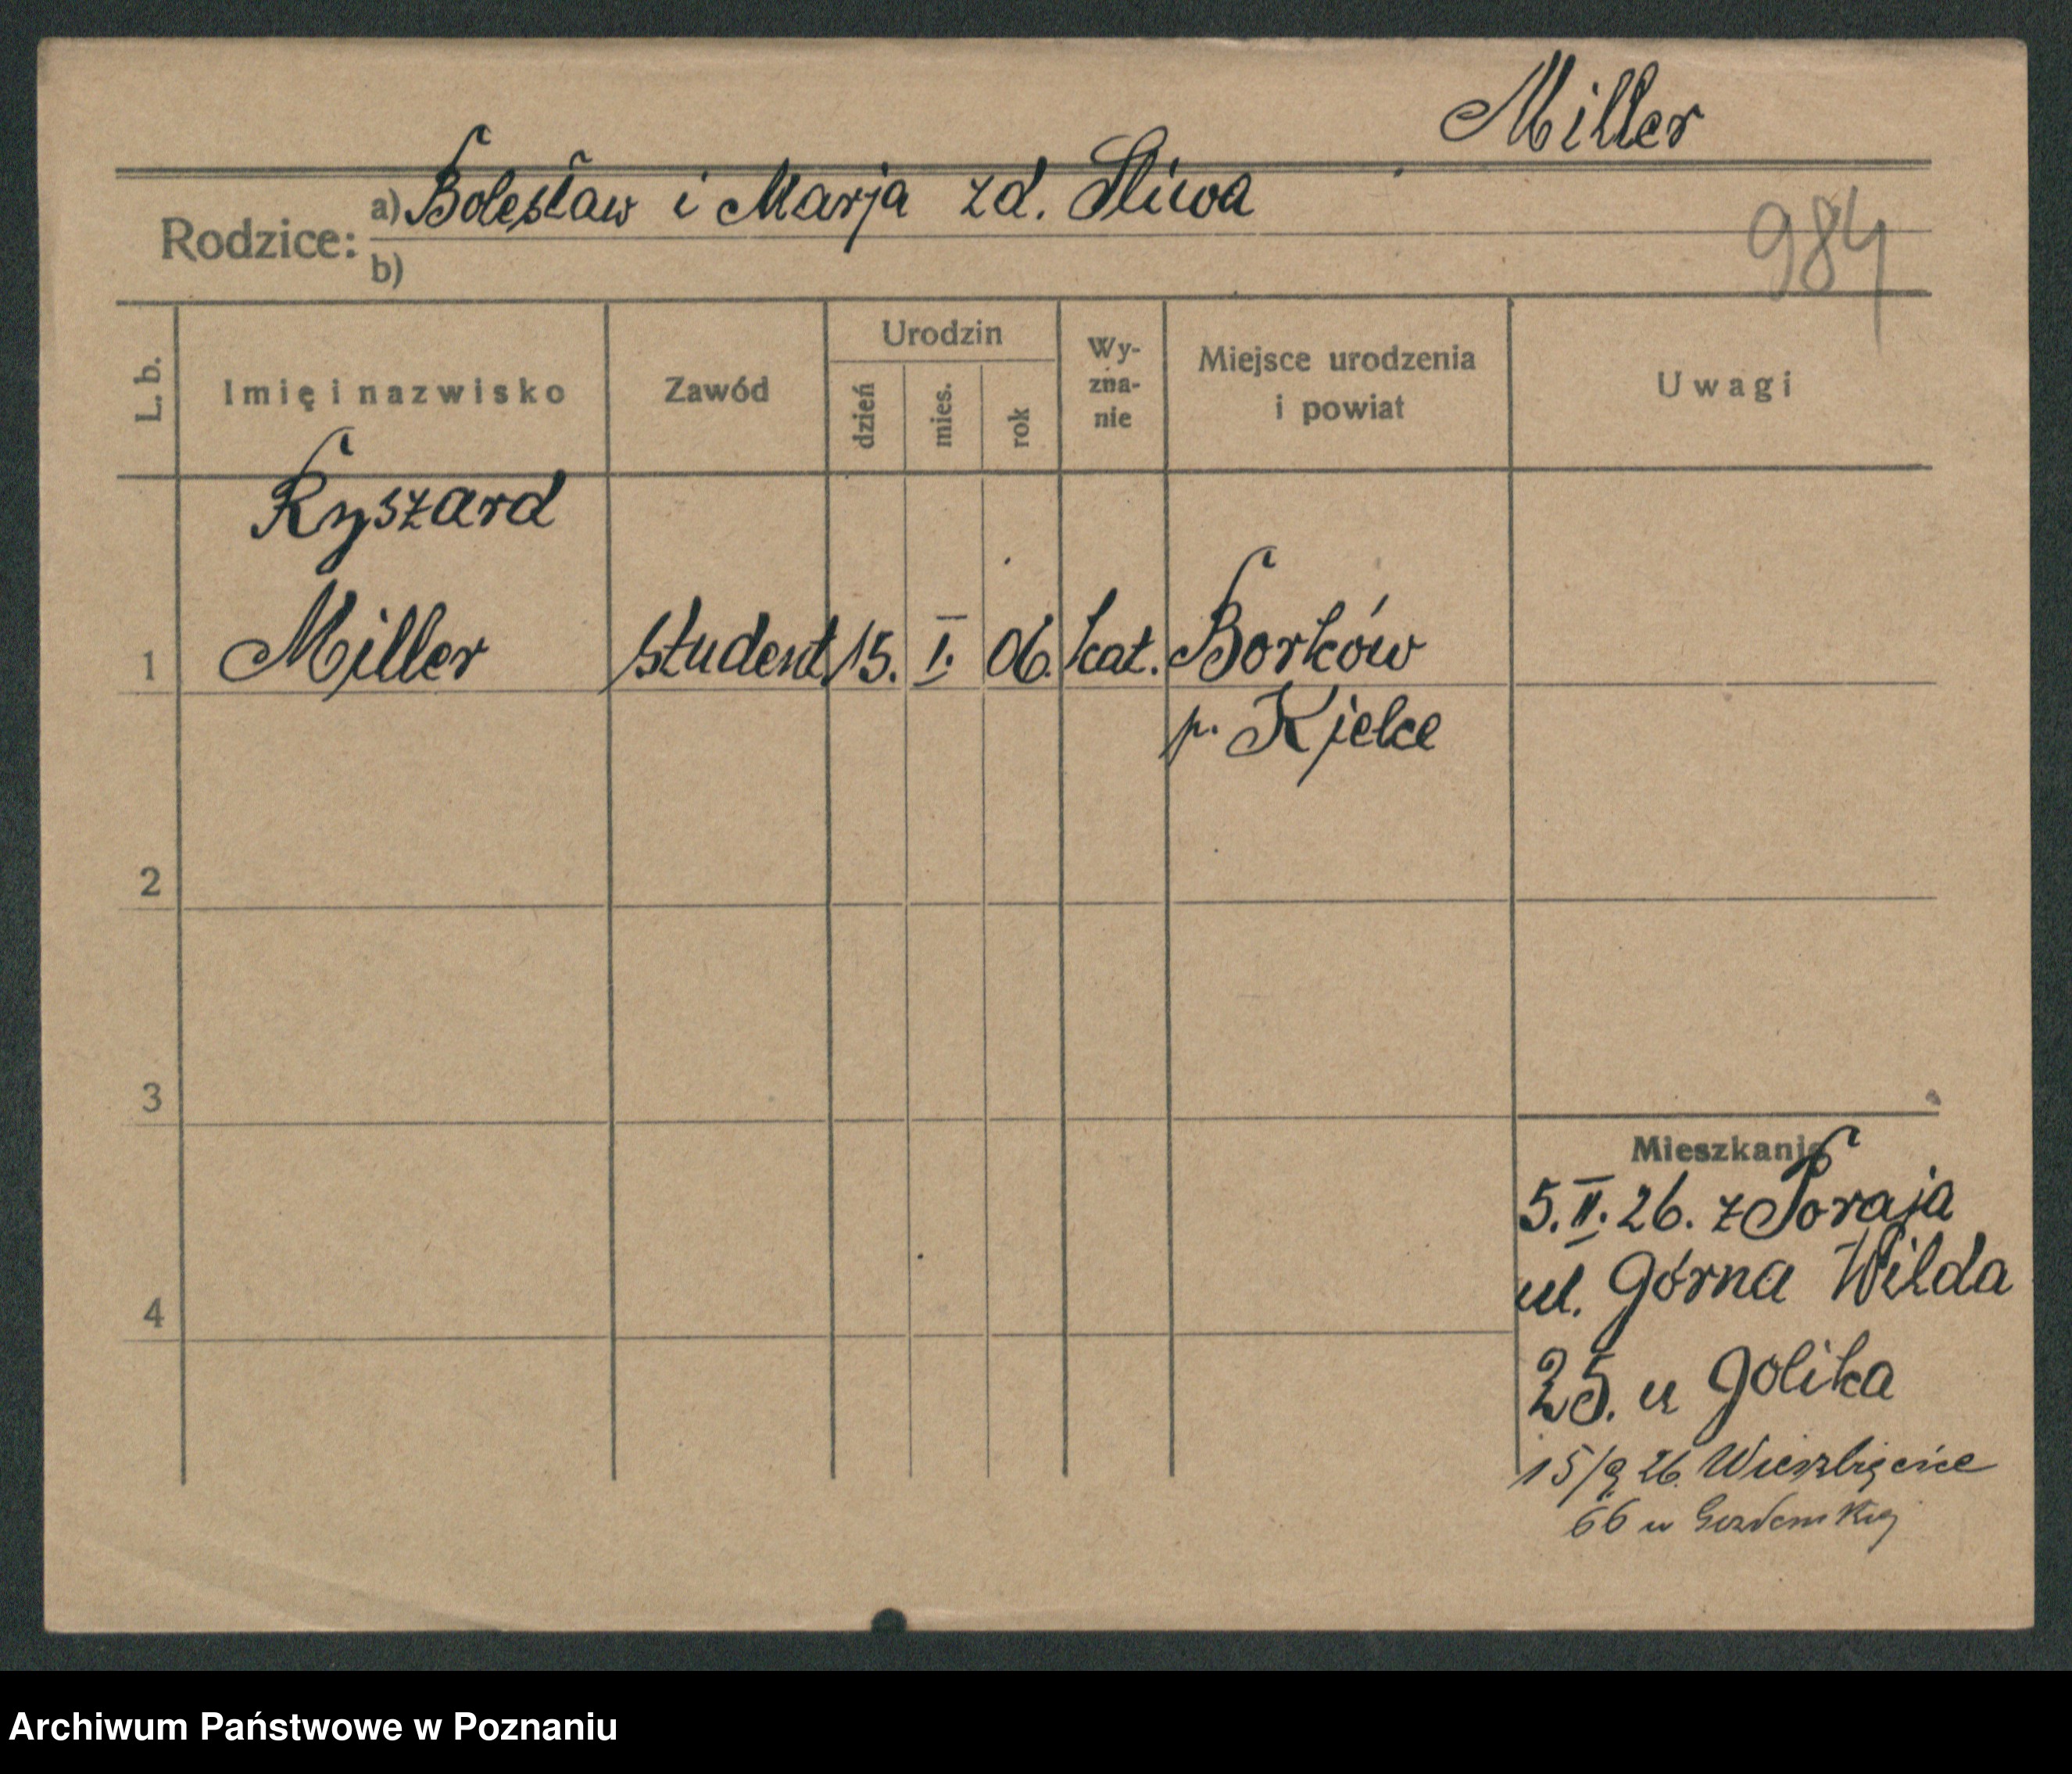 Miller
Rodzice: a) Bolesław i Marja zd. Śliwa
b)
984
L. b. Imię i nazwisko Zawód Urodzin dzień mies. rok Wy-zna-nie Miejsce urodzenia i powiat Uwagi
Ryszard
1 Miller student 15. I. 06. kat. Borków
p. Kjelce
2
3
Mieszkanie
5. II. 26. z Poraja
ul. Górna Wilda
4
25. u Golika
15/9 26. Wierzbięcice
66 u
Archiwum Państwowe w Poznaniu